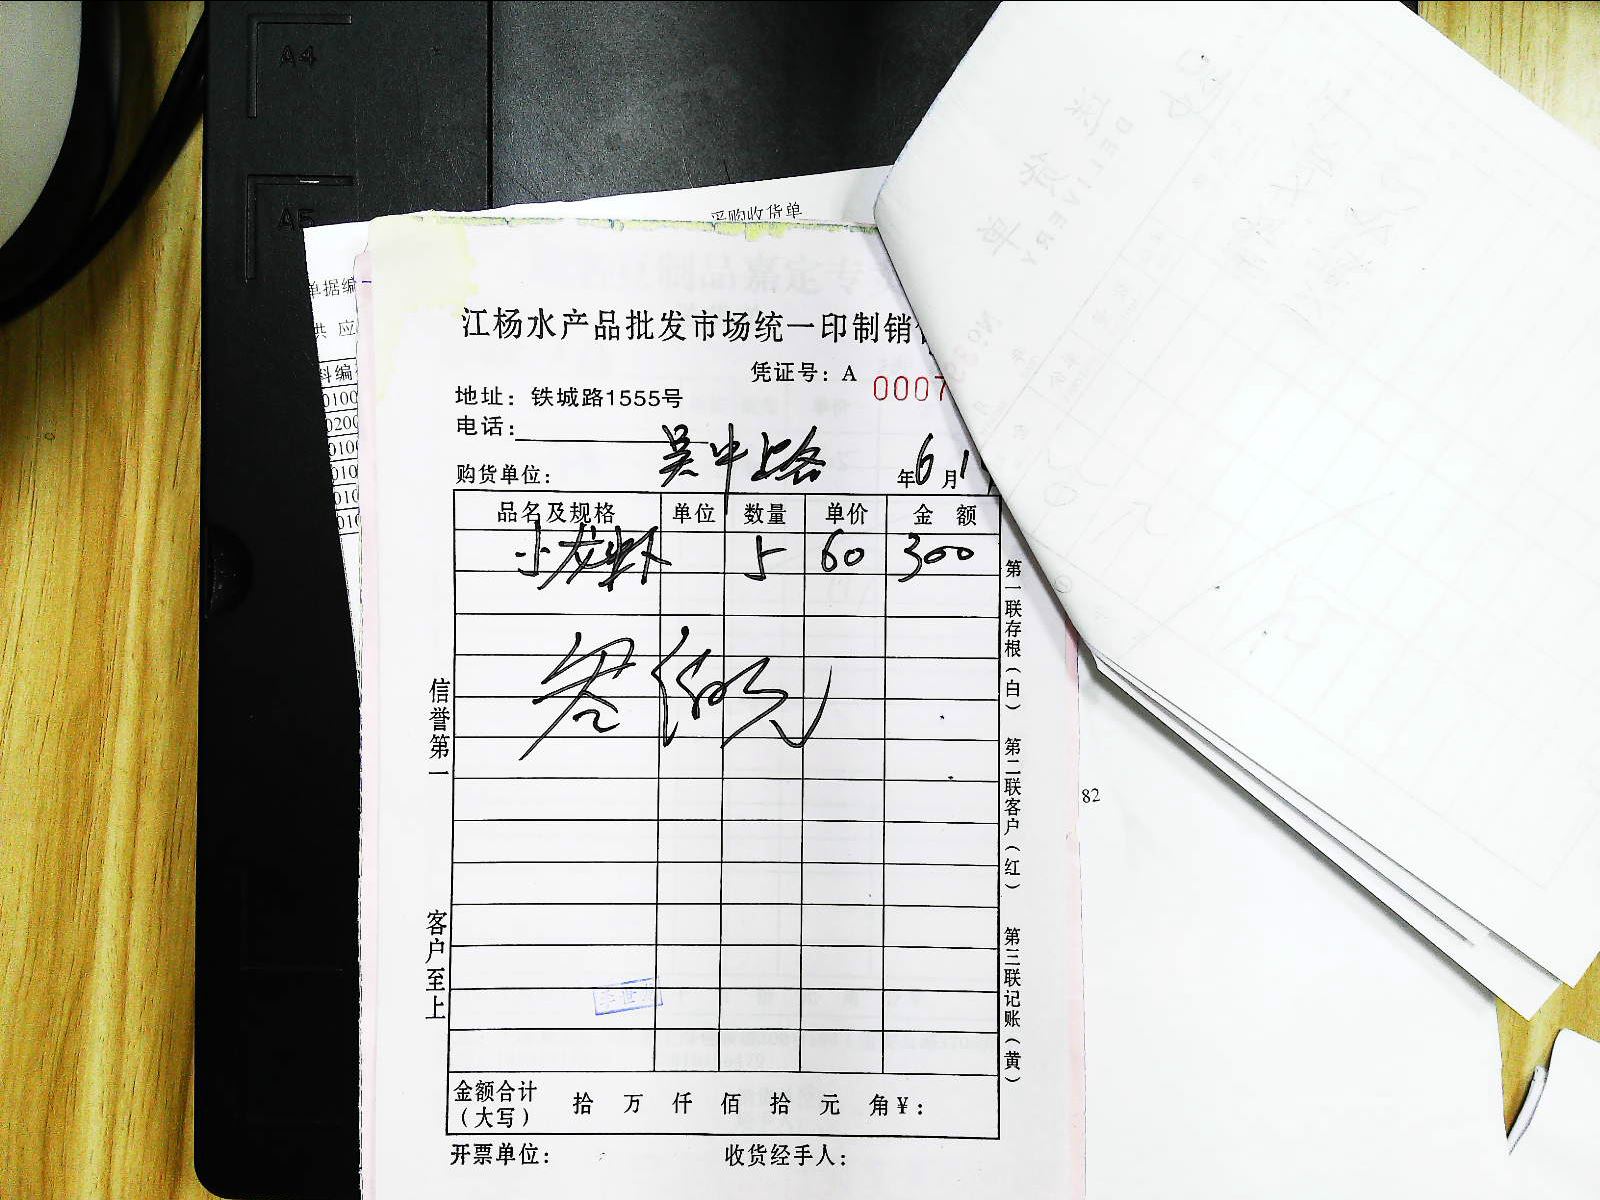 A4
A5
采购收货单
单据编
供 应
料编
0100
0200
0100
010
010
010
江杨水产品批发市场统一印制销
凭证号：A 0007
地址：铁城路1555号
电话：
购货单位：吴中路 年6月1
品名及规格 单位 数量 单价 金 额
小龙虾 5 60 300
叁佰元
信誉第一
客户至上
第一联存根（白） 第二联客户（红） 第三联记账（黄）
82
金额合计（大写） 拾 万 仟 佰 拾 元 角￥：
开票单位： 收货经手人：